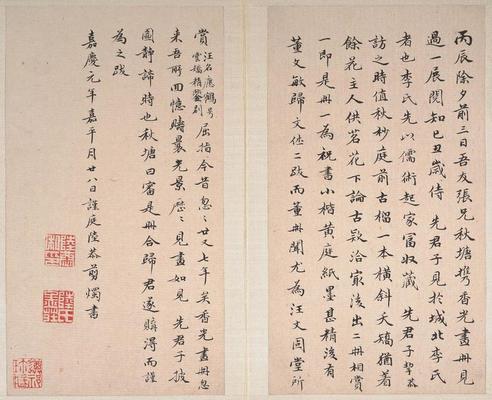 丙辰除夕前三日吾友張兄秋塘攜香光畫冊見
過一展閱知己丑歲侍 先君子見於城北李氏
者也李氏先以儒術起家富收藏 先君子挈恭
訪之時值秋杪庭前古榴一本橫斜夭矯猶著
餘花主人供茗花下論古款洽冣後出二冊相賞
一即是冊一為祝書小楷黃庭紙墨甚精後有
董文敏歸文休二跋而董冊聞尤為汪文園堂所
賞汪名應鶴号雲矯精鑒別屈指今昔忽〻廿又七年矣香光畫冊忽
來吾所回憶疇曩光景歷〻見畫如見 先君子披
圖靜諦時也秋塘曰審是冊合歸君遂購得而謹
為之跋
嘉慶元年嘉平月廿八日謹庭陸恭剪燭書